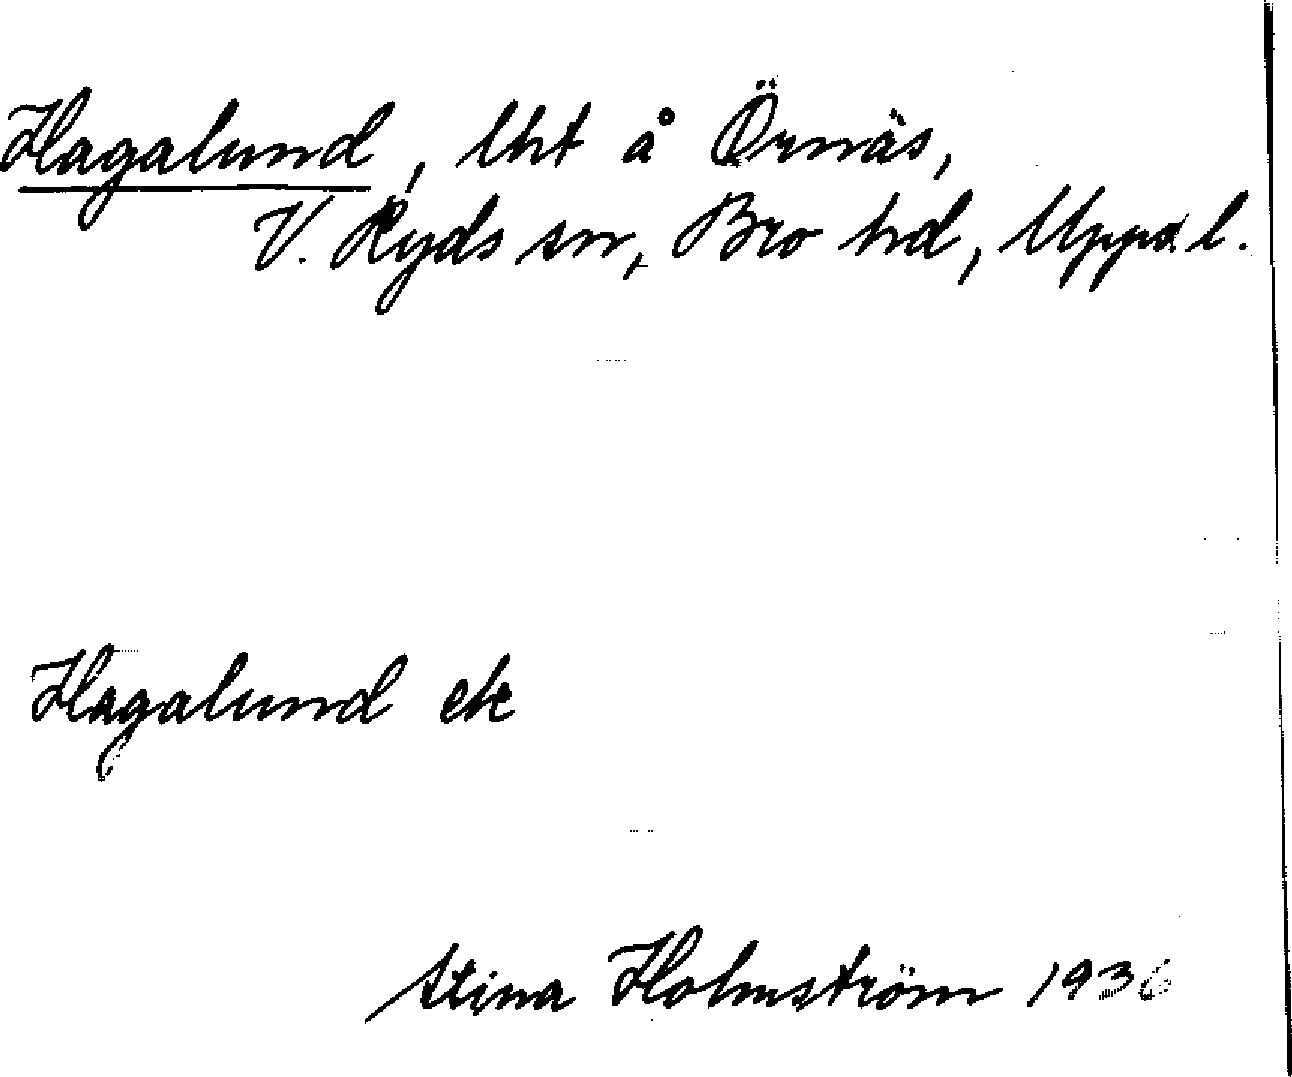 Hagalund, lht å Örnäs,
V. Ryds sn, Bro hd, Uppsl.
Hagalund ek
Stina Holmström 1936